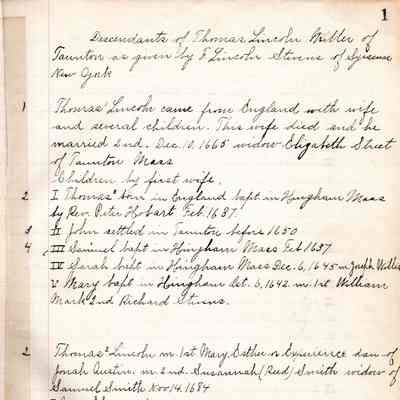 1
Descendants of Thomas Lincoln Miller of
Taunton as given by F Lincoln Stevens of Syracuse
New York
1 Thomas Lincoln came from England with wife
and several children. This wife died and he
married 2nd. Dec. 10, 1665 widow Elizabeth Street
of Taunton Mass
Children by first wife.
2 I Thomas² born in England bapt in Hingham Mass
by Rev. Peter Hobart Feb. 1637.
3 II John settled in Taunton before 1650
4 III Samuel bapt in Hingham Mass Feb 1637
IV Sarah bapt in Hingham Mass Dec. 6, 1645 m Joseph Willis
V Mary bapt in Hingham Oct. 6, 1642. m. 1st William
Mark 2nd Richard Stevens.
2 Thomas² Lincoln m. 1st Mary, Esther or Experience dau of
Jonah Austin. m 2nd. Susannah (Reed) Smith widow of
Samuel Smith Nov 14, 1689